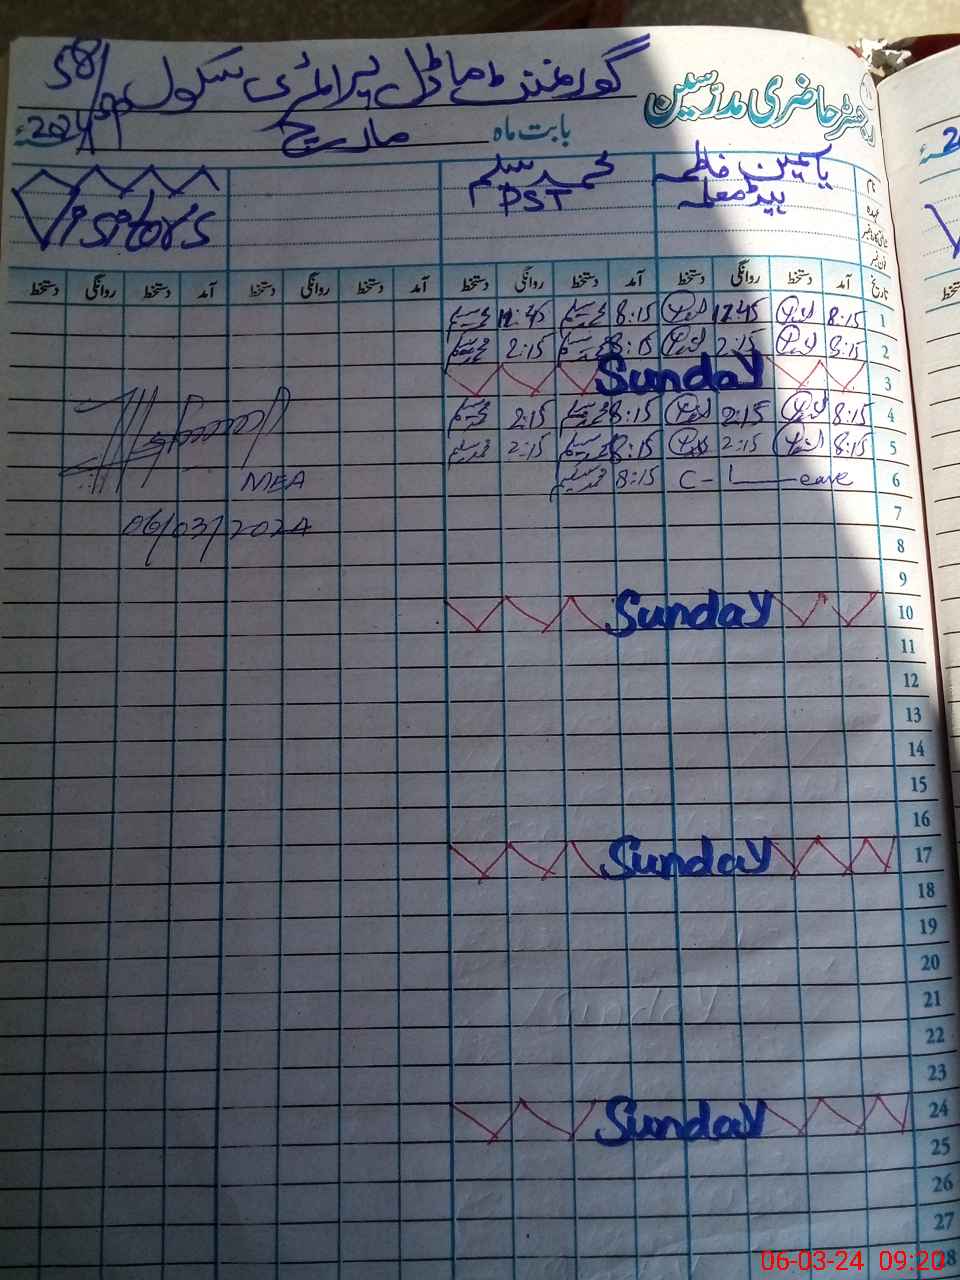 رجسٹر حاضری مدرسین
گورنمنٹ ماڈل پرائمری سکول 58/
بابت ماہ مارچ 2024ء
نام یاسمین فاطمہ محمد سلیم Visitors
عہدہ ہیڈ معلمہ PST
فون نمبر
تاریخ آمد دستخط روانگی دستخط آمد دستخط روانگی دستخط آمد دستخط روانگی دستخط آمد دستخط روانگی دستخط
1 8:15 12:45 8:15 12:45
2 8:15 2:15 8:15 2:15
3 Sunday
4 8:15 2:15 8:15 2:15
5 8:15 2:15 8:15 2:15
6 C-Leave 8:15 MEA
7 06/03/2024
8
9
10 Sunday
11
12
13
14
15
16
17 Sunday
18
19
20
21 Sunday
22
23
24 Sunday
25
26
27
28
06-03-24 09:20